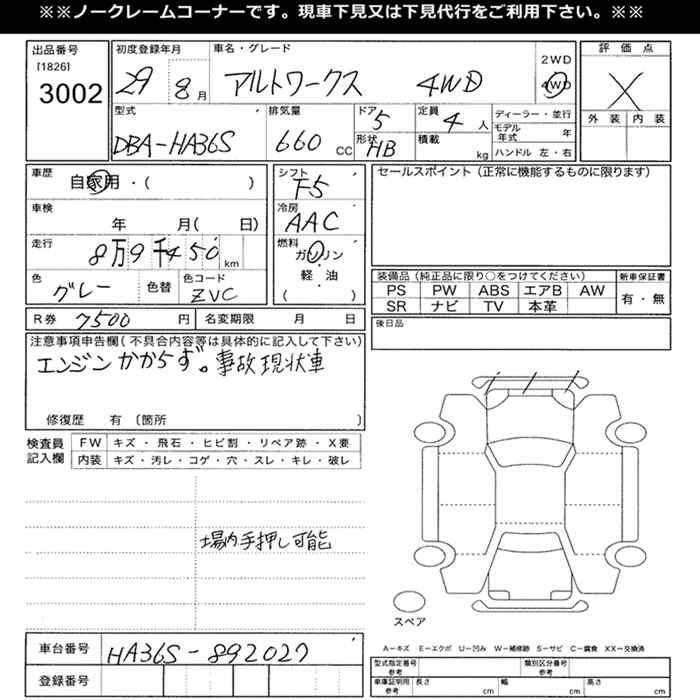 ※※ノークレームコーナーです。現車下見又は下見代行をご利用下さい。※※
出品番号
[1826]
3002
初度登録年月
29 8月
車名・グレード
アルトワークス 4WD
2WD
4WD
評価点
X
外装 内装
型式
DBA-HA36S
排気量
660 CC
ドア 5
形状 HB
定員 4 人
積載 kg
ディーラー・並行
モデル年式 年
ハンドル 左・右
車歴
自家用・( )
車検
年 月( 日)
走行
8万9千450 km
色
グレー
色替
色コード
ZVC
シフト
F5
冷房
AAC
燃料
ガソリン
・
軽・油
( )
セールスポイント(正常に機能するものに限ります)
装備品(純正品に限り○をつけてください)
PS PW ABS エアB AW
SR ナビ TV 本革
新車保証書
有・無
R券 7500 円
名変期限 月 日
後日品
注意事項申告欄(不具合内容等は具体的に記入して下さい)
エンジンかからず。事故現状車
修復歴 有 〔箇所 〕
検査員
記入欄
FW キズ・飛石・ヒビ割・リペア跡・X要
内装 キズ・汚レ・コゲ・穴・スレ・キレ・破レ
場内手押し可能
スペア
A－キズ E－エクボ U－凹み W－補修跡 S－サビ C－腐食 XX－交換済
車台番号
HA36S-892027
登録番号
型式指定番号
参考
類別区分番号
参考
車庫証明用
参考
長さ cm
幅 cm
高さ cm